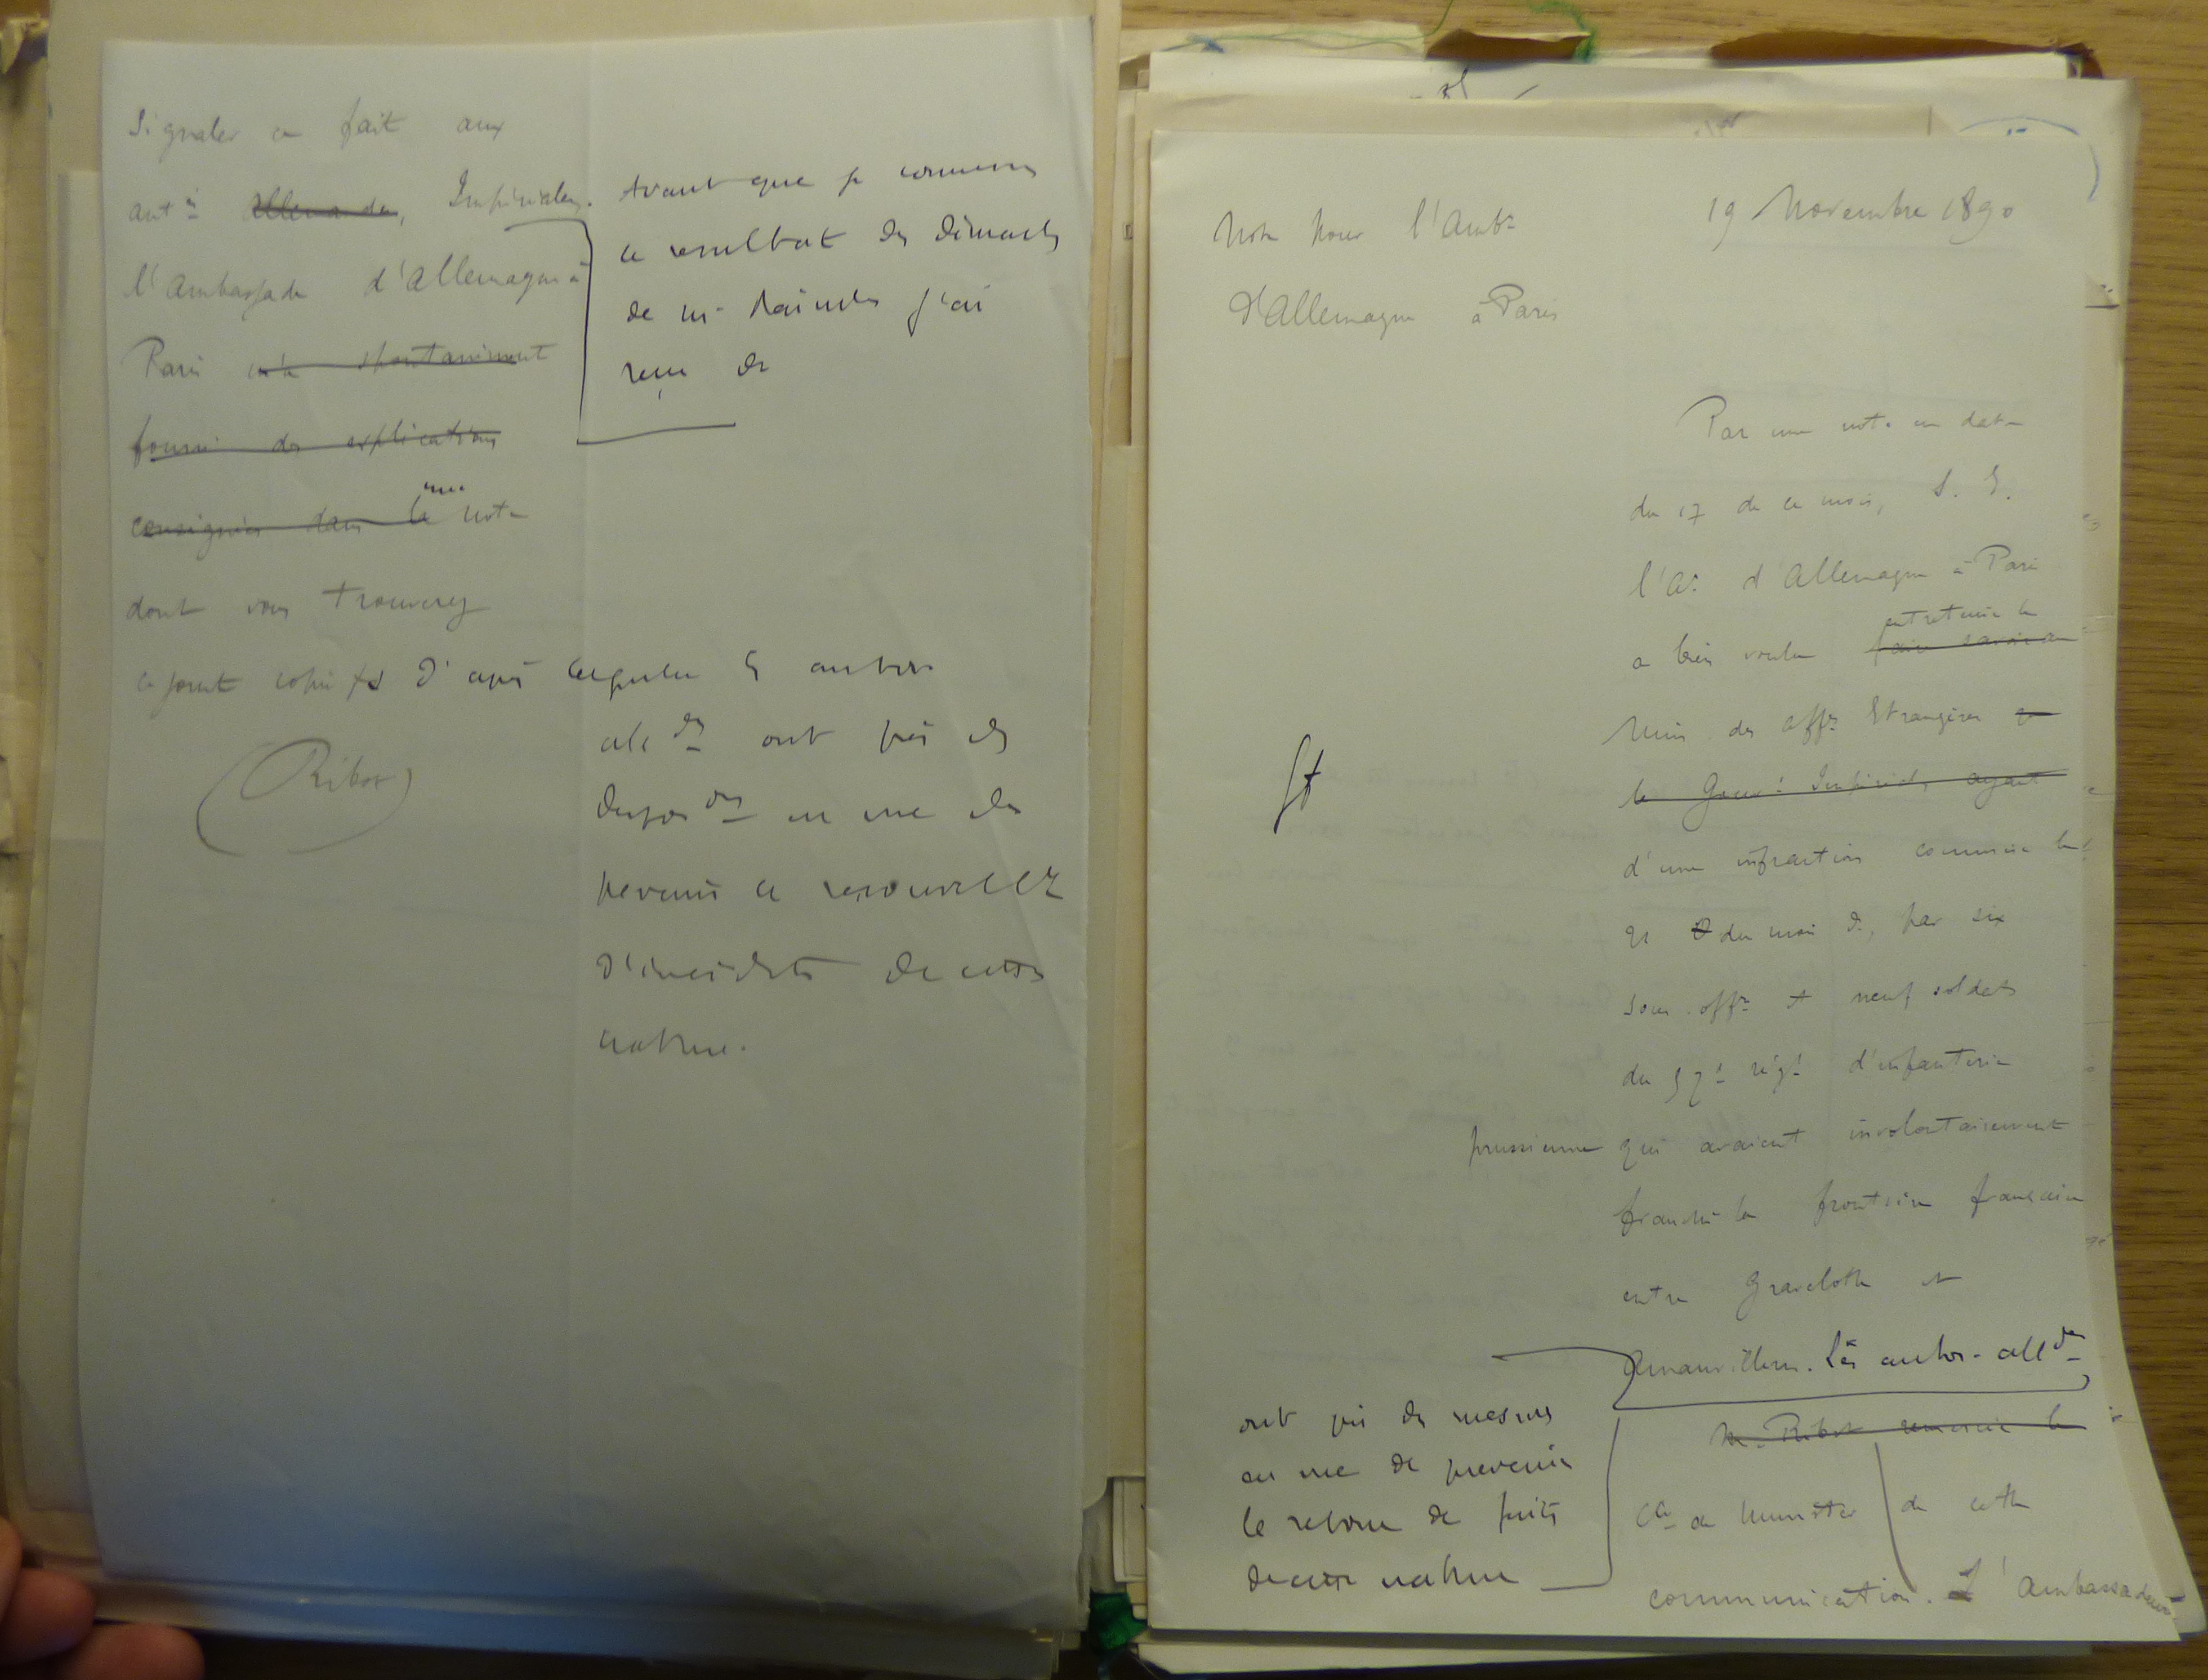 Signaler ce fait aux
autés Allemandes, Impériales.
l'Ambassade d'Allemagne à
Paris m'a spontanément
fourni des explications
consignées dans la une note
dont vous trouverez
ci joint copie et d'après laquelle les autor.
Avant que je connusse
le résultat des démarches
de M.
j'ai
reçu de
alldes ont pris des
disposons en vue de
prévenir le renouvellt
d'incidents de cette
nature.
(Ribot)
19 Novembre 1890
Note pour l'Ambe
d'Allemagne à Paris
Par une note en date
du 17 de ce mois, S. E.
l'Ar d'Allemagne à Paris
a bien voulu faire savoir au entretenir le
Min. des Affres Etrangères
le Gouvt Impérial, ayant
d'une infraction commise le
21 du mois dr, par six
sous. offrs et neuf soldats
du régt d'infanterie
prussienne qui avaient involontairement
franchi la frontière française
entre Gravelotte et
Amanvillers. Les autor. alldes
ont pris des mesures
en vue de prévenir
le retour de faits
de cette nature
M. Ribot remercie le
Cte de Munster de cette
communication. L'Ambassadeur